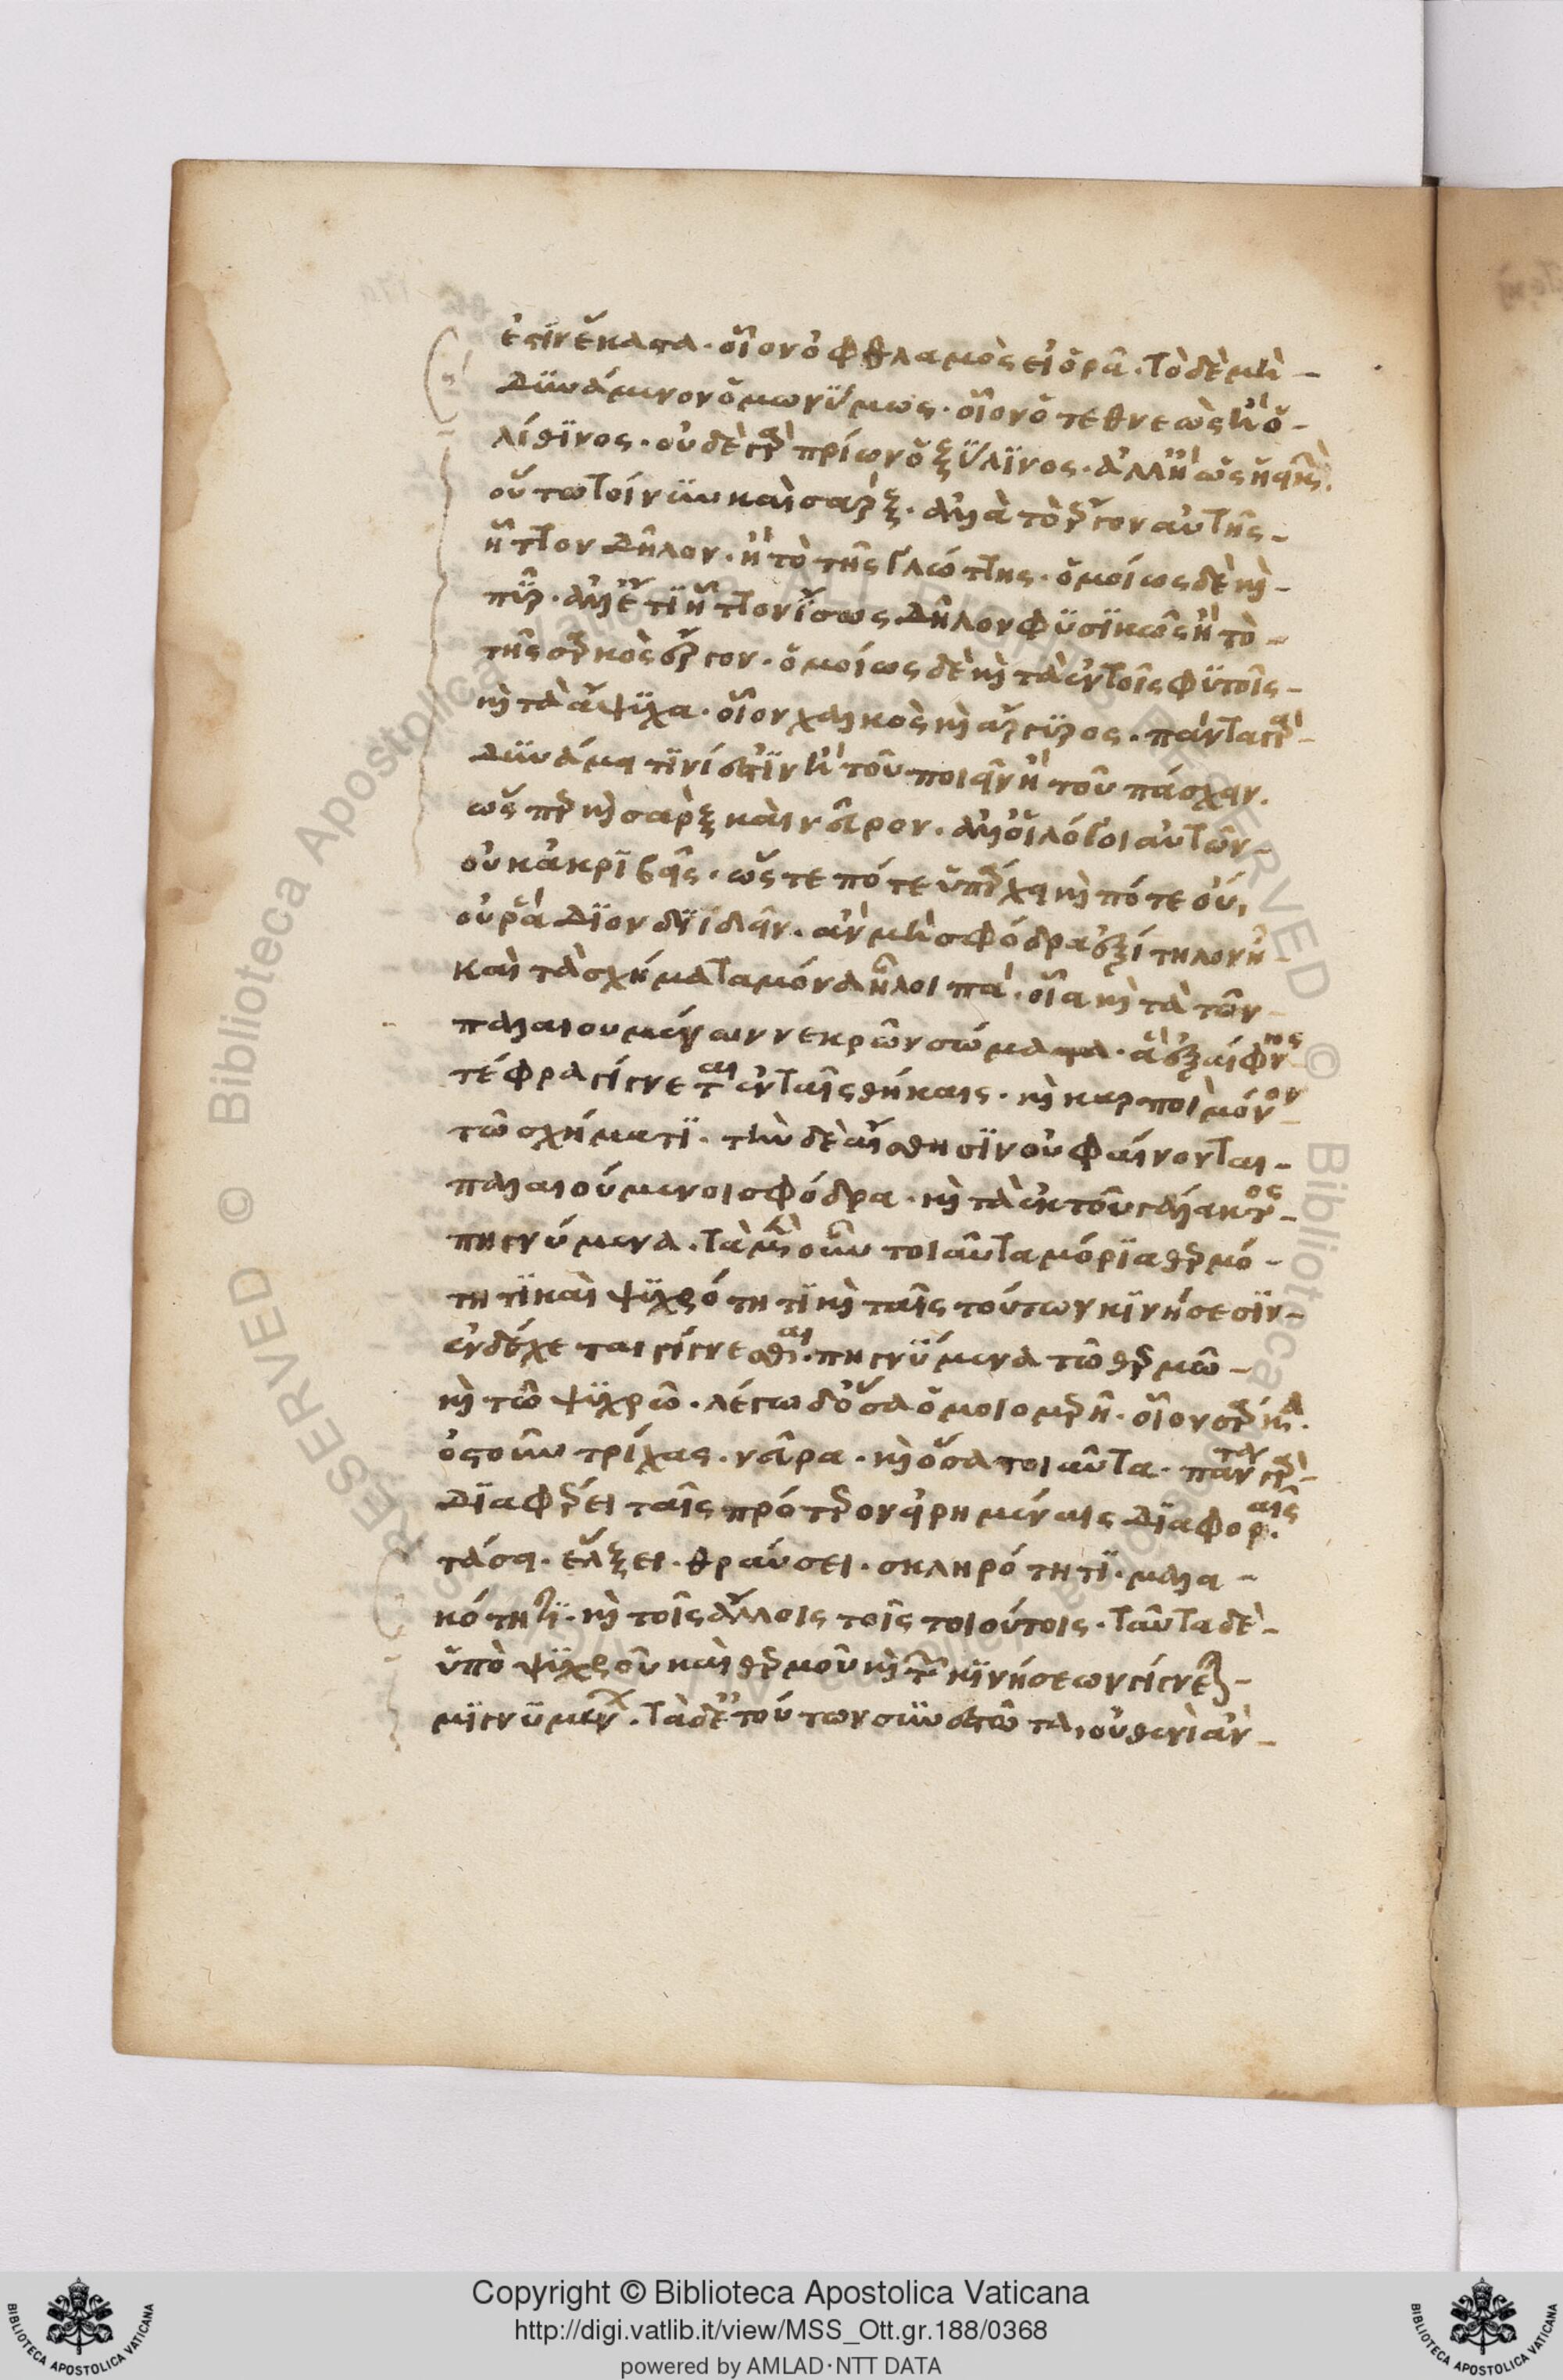 ἐστὶν ἕκαστα· οἷον ὀφθαλμὸς εἰ ὁρᾷ· τὸ δὲ μὴ
δυνάμενον ὁμωνύμως· οἷον ὁ τεθνεὼς ἢ ὁ
λίθινος· οὐδὲ γὰρ πρίων ὁ ξύλινος· ἀλλ' ἢ ὡς ἡ εἰκὼν·
οὕτω τοίνυν καὶ σάρξ· ἀλλὰ τὸ ἔργον αὐτῆς
ἧττον δῆλον· ἢ τὸ τῆς γλώττης· ὁμοίως δὲ καὶ
πῦρ· ἀλλ' ἔτι ἧττον ἴσως δῆλον φυσικῶς ἢ τὸ
τῆς σαρκὸς ἔργον· ὁμοίως δὲ καὶ τὰ ἐν τοῖς φυτοῖς
καὶ τὰ ἄψυχα· οἷον χαλκὸς καὶ ἄργυρος· πάντα γὰρ
δυνάμει τινί ἐστιν ἢ τοῦ ποιεῖν ἢ τοῦ πάσχειν.
ὥσπερ καὶ σὰρξ καὶ νεῦρον· ἀλλ' οἱ λόγοι αὐτῶν
οὐκ ἀκριβεῖς· ὥστε πότε ὑπάρχει καὶ πότε οὔ,
οὐ ῥάδιον διϊδεῖν· ἂν μὴ σφόδρα ἐξίτηλον ᾖ
καὶ τὰ σχήματα μόνα ᾖ λοιπά· οἷα καὶ τὰ τῶν
παλαιουμένων νεκρῶν σώματα· ἃ ἐξαίφνης
τέφρα γίγνεται ἐν ταῖς θήκαις· καὶ καρποὶ μόνον
τῷ σχήματι· τὴν δὲ αἴσθησιν οὐ φαίνονται
παλαιούμενοι σφόδρα· καὶ τὰ ἐκ τοῦ γάλακτος
πηγνύμενα· τὰ μὲν οὖν τοιαῦτα μόρια θερμό
τητι καὶ ψυχρότητι καὶ ταῖς τούτων κινήσεσιν
ἐνδέχεται γίγνεσθαι· πηγνύμενα τῷ θερμῷ
καὶ τῷ ψυχρῷ· λέγω δ' ὅσα ὁμοιομερῆ· οἷον σάρκα·
ὀστοῦν τρίχας· νεῦρα· καὶ ὅσα τοιαῦτα· πάντα γὰρ
διαφέρει ταῖς πρότερον εἰρημέναις διαφοραῖς·
τάσει· ἕλξει· θραύσει· σκληρότητι· μαλα
κότητι· καὶ τοῖς ἄλλοις τοῖς τοιούτοις· ταῦτα δὲ
ὑπὸ ψυχροῦ καὶ θερμοῦ καὶ τῶν κινήσεων γίγνεται
μιγνυμένων· τὰ δ' ἐκ τούτων συνεστῶτα, οὐθενὶ ἂν
Copyright © Biblioteca Apostolica Vaticana
http://digi.vatlib.it/view/MSS_Ott.gr.188/0368
powered by AMLAD·NTT DATA